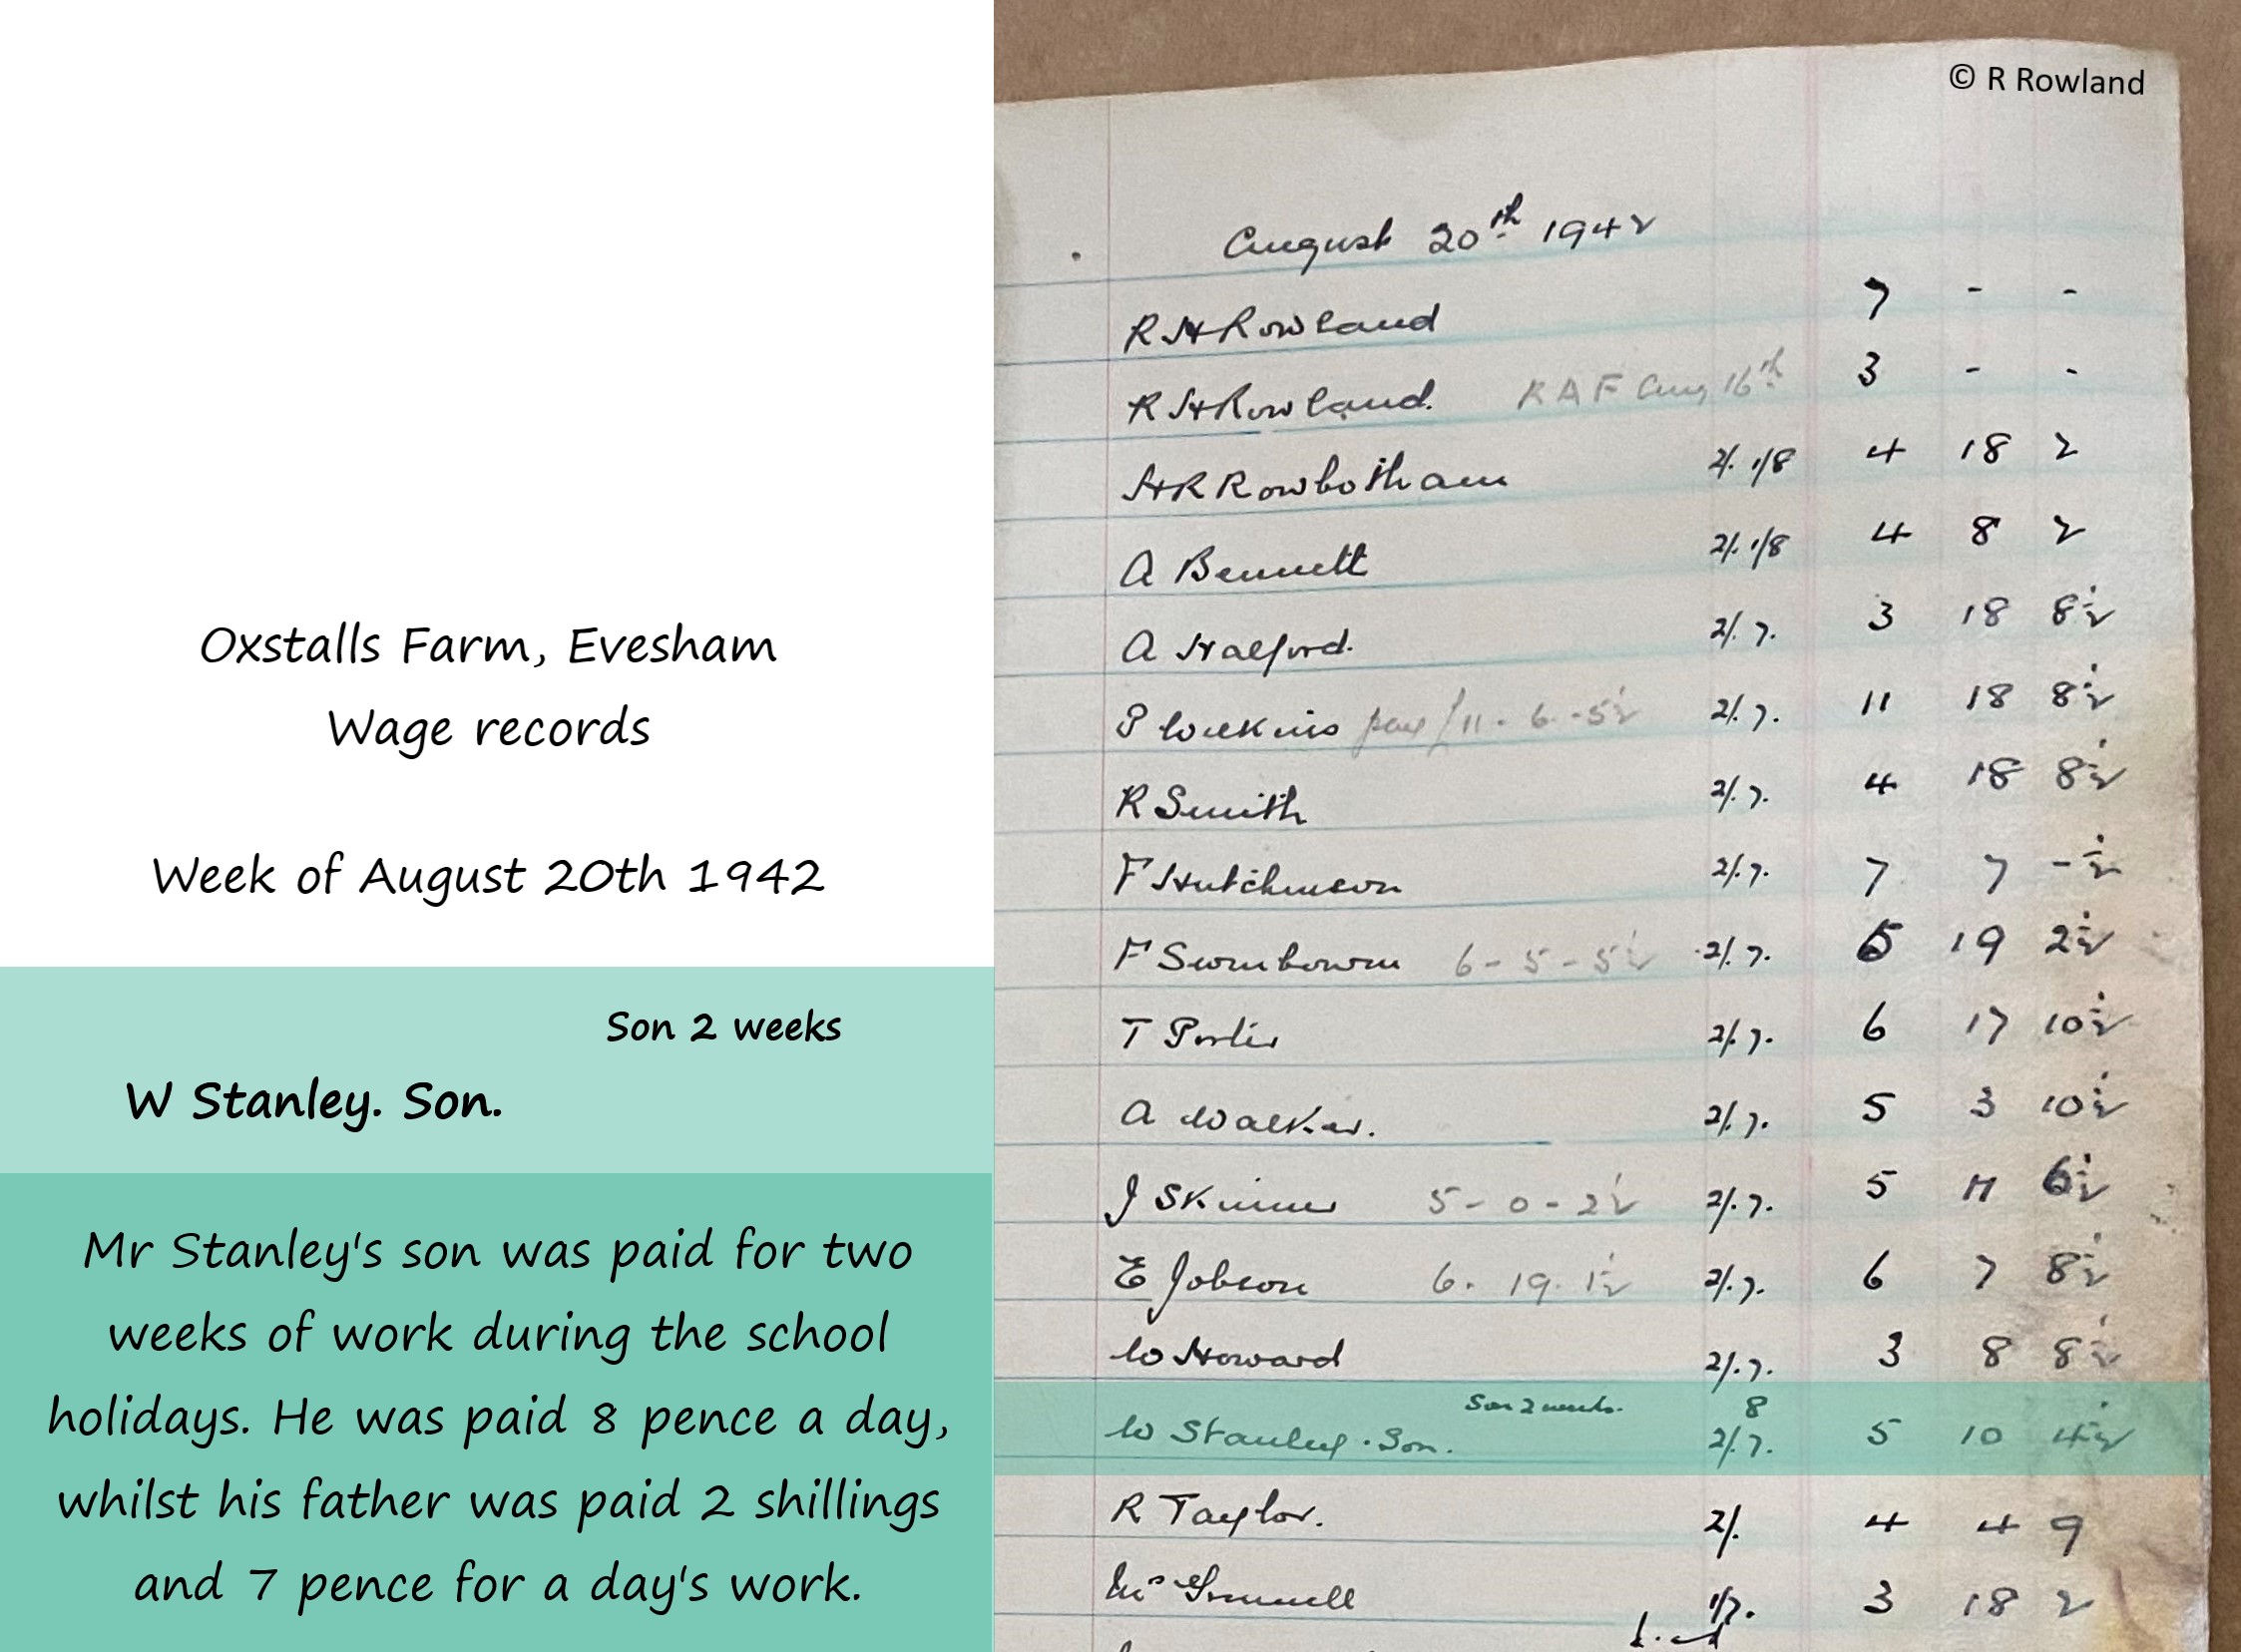 Oxstalls Farm, Evesham
Wage records
Week of August 20th 1942
Son 2 weeks
W Stanley. Son.
Mr Stanley's son was paid for two
weeks of work during the school
holidays. He was paid 8 pence a day,
whilst his father was paid 2 shillings
and 7 pence for a day's work.
© R Rowland
August 20th 1942
R H Rowland 7 - -
R H Rowland. RAF Aug 16th 3 - -
H R Rowbotham 2/. 1/8 4 18 2
A Bennett 2/. 1/8 4 8 2
A Halford. 2/. 7. 3 18 8½
2/. 7. 11 18 8½
R Smith 2/. 7. 4 18 8½
F Hutchinson 2/. 7. 7 7 -½
F 6-5-5½ 2/. 7. 5 19 2½
T Porter 2/. 7. 6 17 10½
A Walker. 2/. 7. 5 3 10½
J Skinner 5-0-2½ 2/. 7. 5 11 6½
E Jobson 6. 19. 1½ 2/. 7. 6 7 8½
W Howard 2/. 7. 3 8 8½
Son 2 weeks. 8
W Stanley. Son. 2/. 7. 5 10 4½
R Taylor. 2/. 4 4 9
Mrs 1/7. 3 18 2